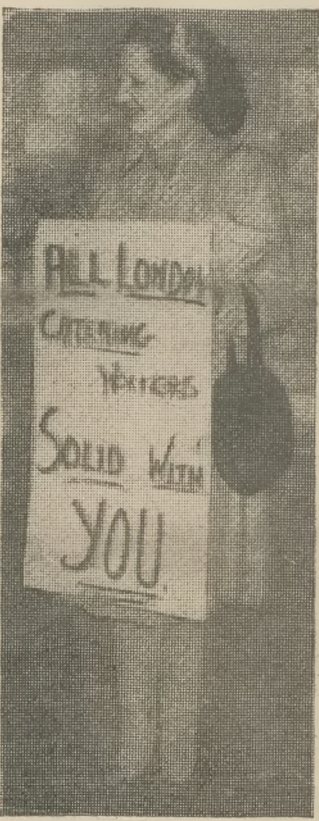 ALL LONDON
CATERING
WORKERS
SOLID WITH
YOU